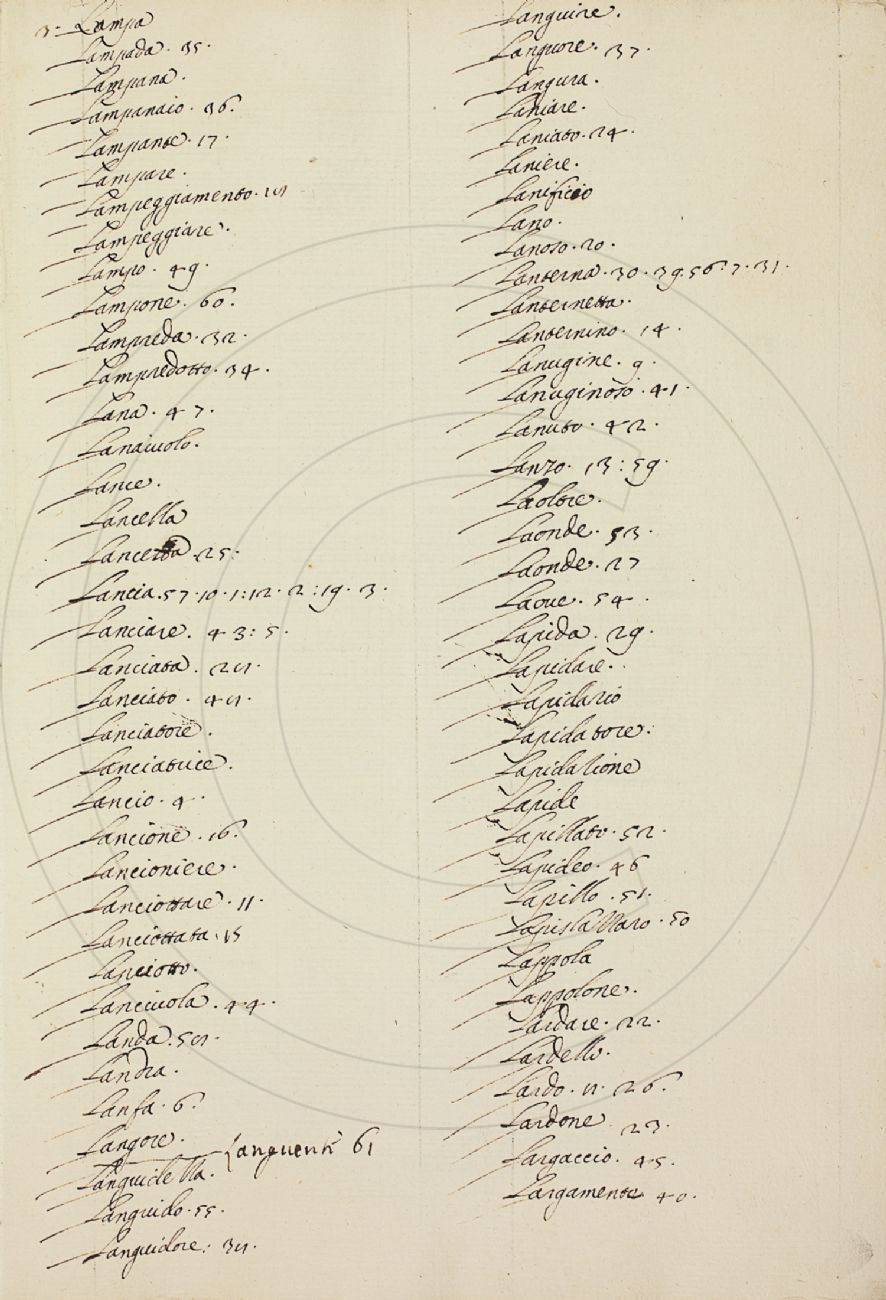 3. Lampa
Lampada. 35.
Lampana.
Lampanaio. 36.
Lampante. 17.
Lampare.
Lampeggiamento.
Lampeggiare.
Lampo. 49.
Lampone. 60.
Lampreda. 32.
Lampredotto. 34.
Lana. 47.
Lanaiuolo.
Lance.
Lancella
25:
Lancia. 57. 10. 1:12. 2:19. 3.
Lanciare. 43:5.
Lanciata.
Lanciato.
Lanciatore.
Lanciatrice.
Lancio. 4.
Lancione. 16.
Lancioniere.
Lanciottare. 11.
Lanciottata. 15
Lanciotto.
Lanciuola. 44.
Landa.
Landra.
Lanfa. 6.
Langore.
Languenti 61
Languidella.
Languido. 55.
Languidore:
Languire.
Languore. 37.
Langura.
Laniare.
Laniato. 24.
Laniere.
Lanificio
Lano.
Lanoso. 20.
Lanterna. 30. 39. 56: 7. 31.
Lanternetta.
Lanternino. 14.
Lanugine. 9.
Lanuginoso. 41.
Lanuto. 42.
Lanzo. 13:59.
Laoltre.
Laonde. 53.
Laonde. 27
Laoue. 54.
Lapida. 29.
Lapidare.
Lapidario
Lapidatore:
Lapidatione
Lapide
Lapillato. 52.
Lapideo. 46
Lapillo. 51.
Lapislazzaro. 50
Lappola
Lappolone.
Lardare. 22.
Lardello.
Lardo. 26.
Lardone. 23.
Largaccio. 45.
Largamente 40.